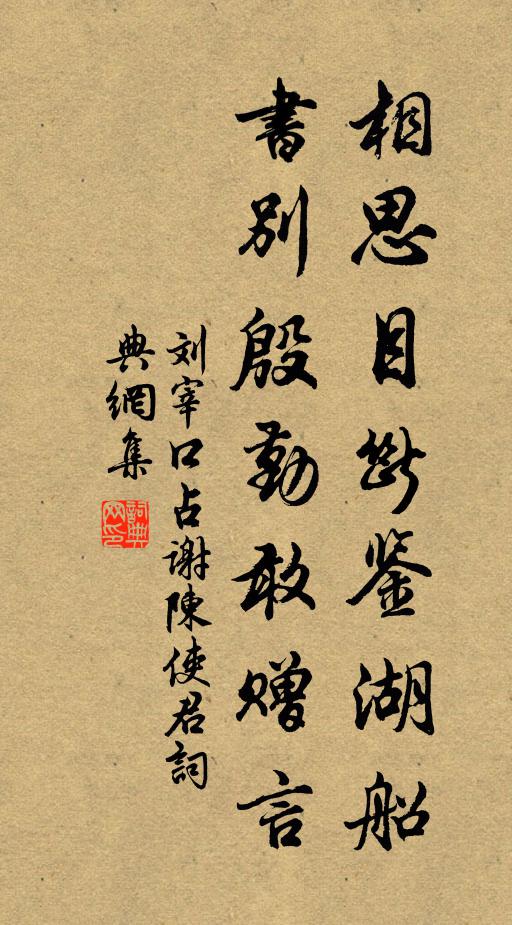 相思目断鉴湖船
書别殷勤敢赠言
刘宰口占谢陳使君詞
典網集
詞典
网印